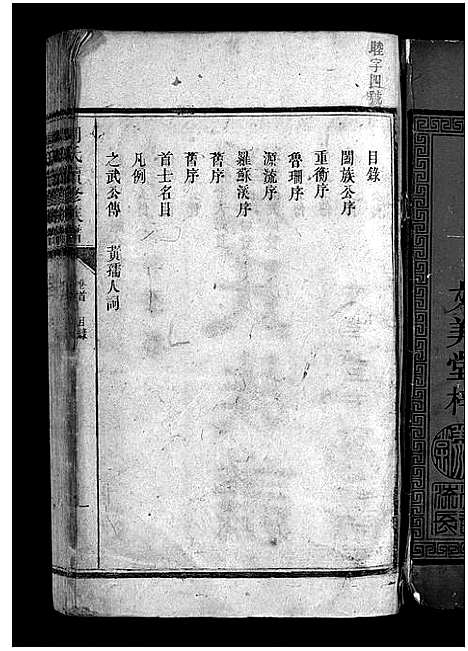 睦字四號
目錄
闔族公序
重衡序
魯珊序
源流序
羅蘇溪序
舊序
舊序
首士名目
凡例
之武公傳 黃孺人詞
氏續修族譜
卷首 目錄
一
美堂梓